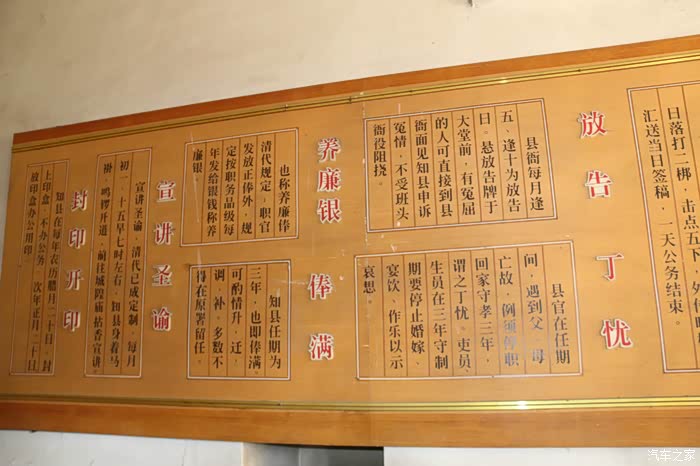 日落打二梆,击点五下,外传
汇送当日签稿,一天公务结束。
放告
县衙每月逢
五、逢十为放告
日。悬放告牌于
大堂前,有冤屈
的人可直接到县
衙面见知县申诉
冤情,不受班头
衙役阻挠。
丁忧
县官在任期
间,遇到父、母
亡故,例须停职
回家守孝三年,
谓之丁忧。吏员、
生员在三年守制
期要停止婚嫁、
宴饮、作乐以示
哀想。
养廉银
也称养廉俸
清代规定,职官
发放正俸外,规
定按职务品级每
年发给银钱称养
廉银。
俸满
知县任期为
三年,也即俸满。
可酌情升、迁、
调、补,多数不
得在原署留任。
宣讲圣谕
宣讲圣谕,清代已成定制,每月
初一、十五早七时左右,知县身着马
褂,鸣锣开道,前往城隍庙拈香宣讲
封印开印
知县在每年农历腊月二十日,封
上印盒,不办公务,次年正月二十日
放印盒办公用印。
汽车之家